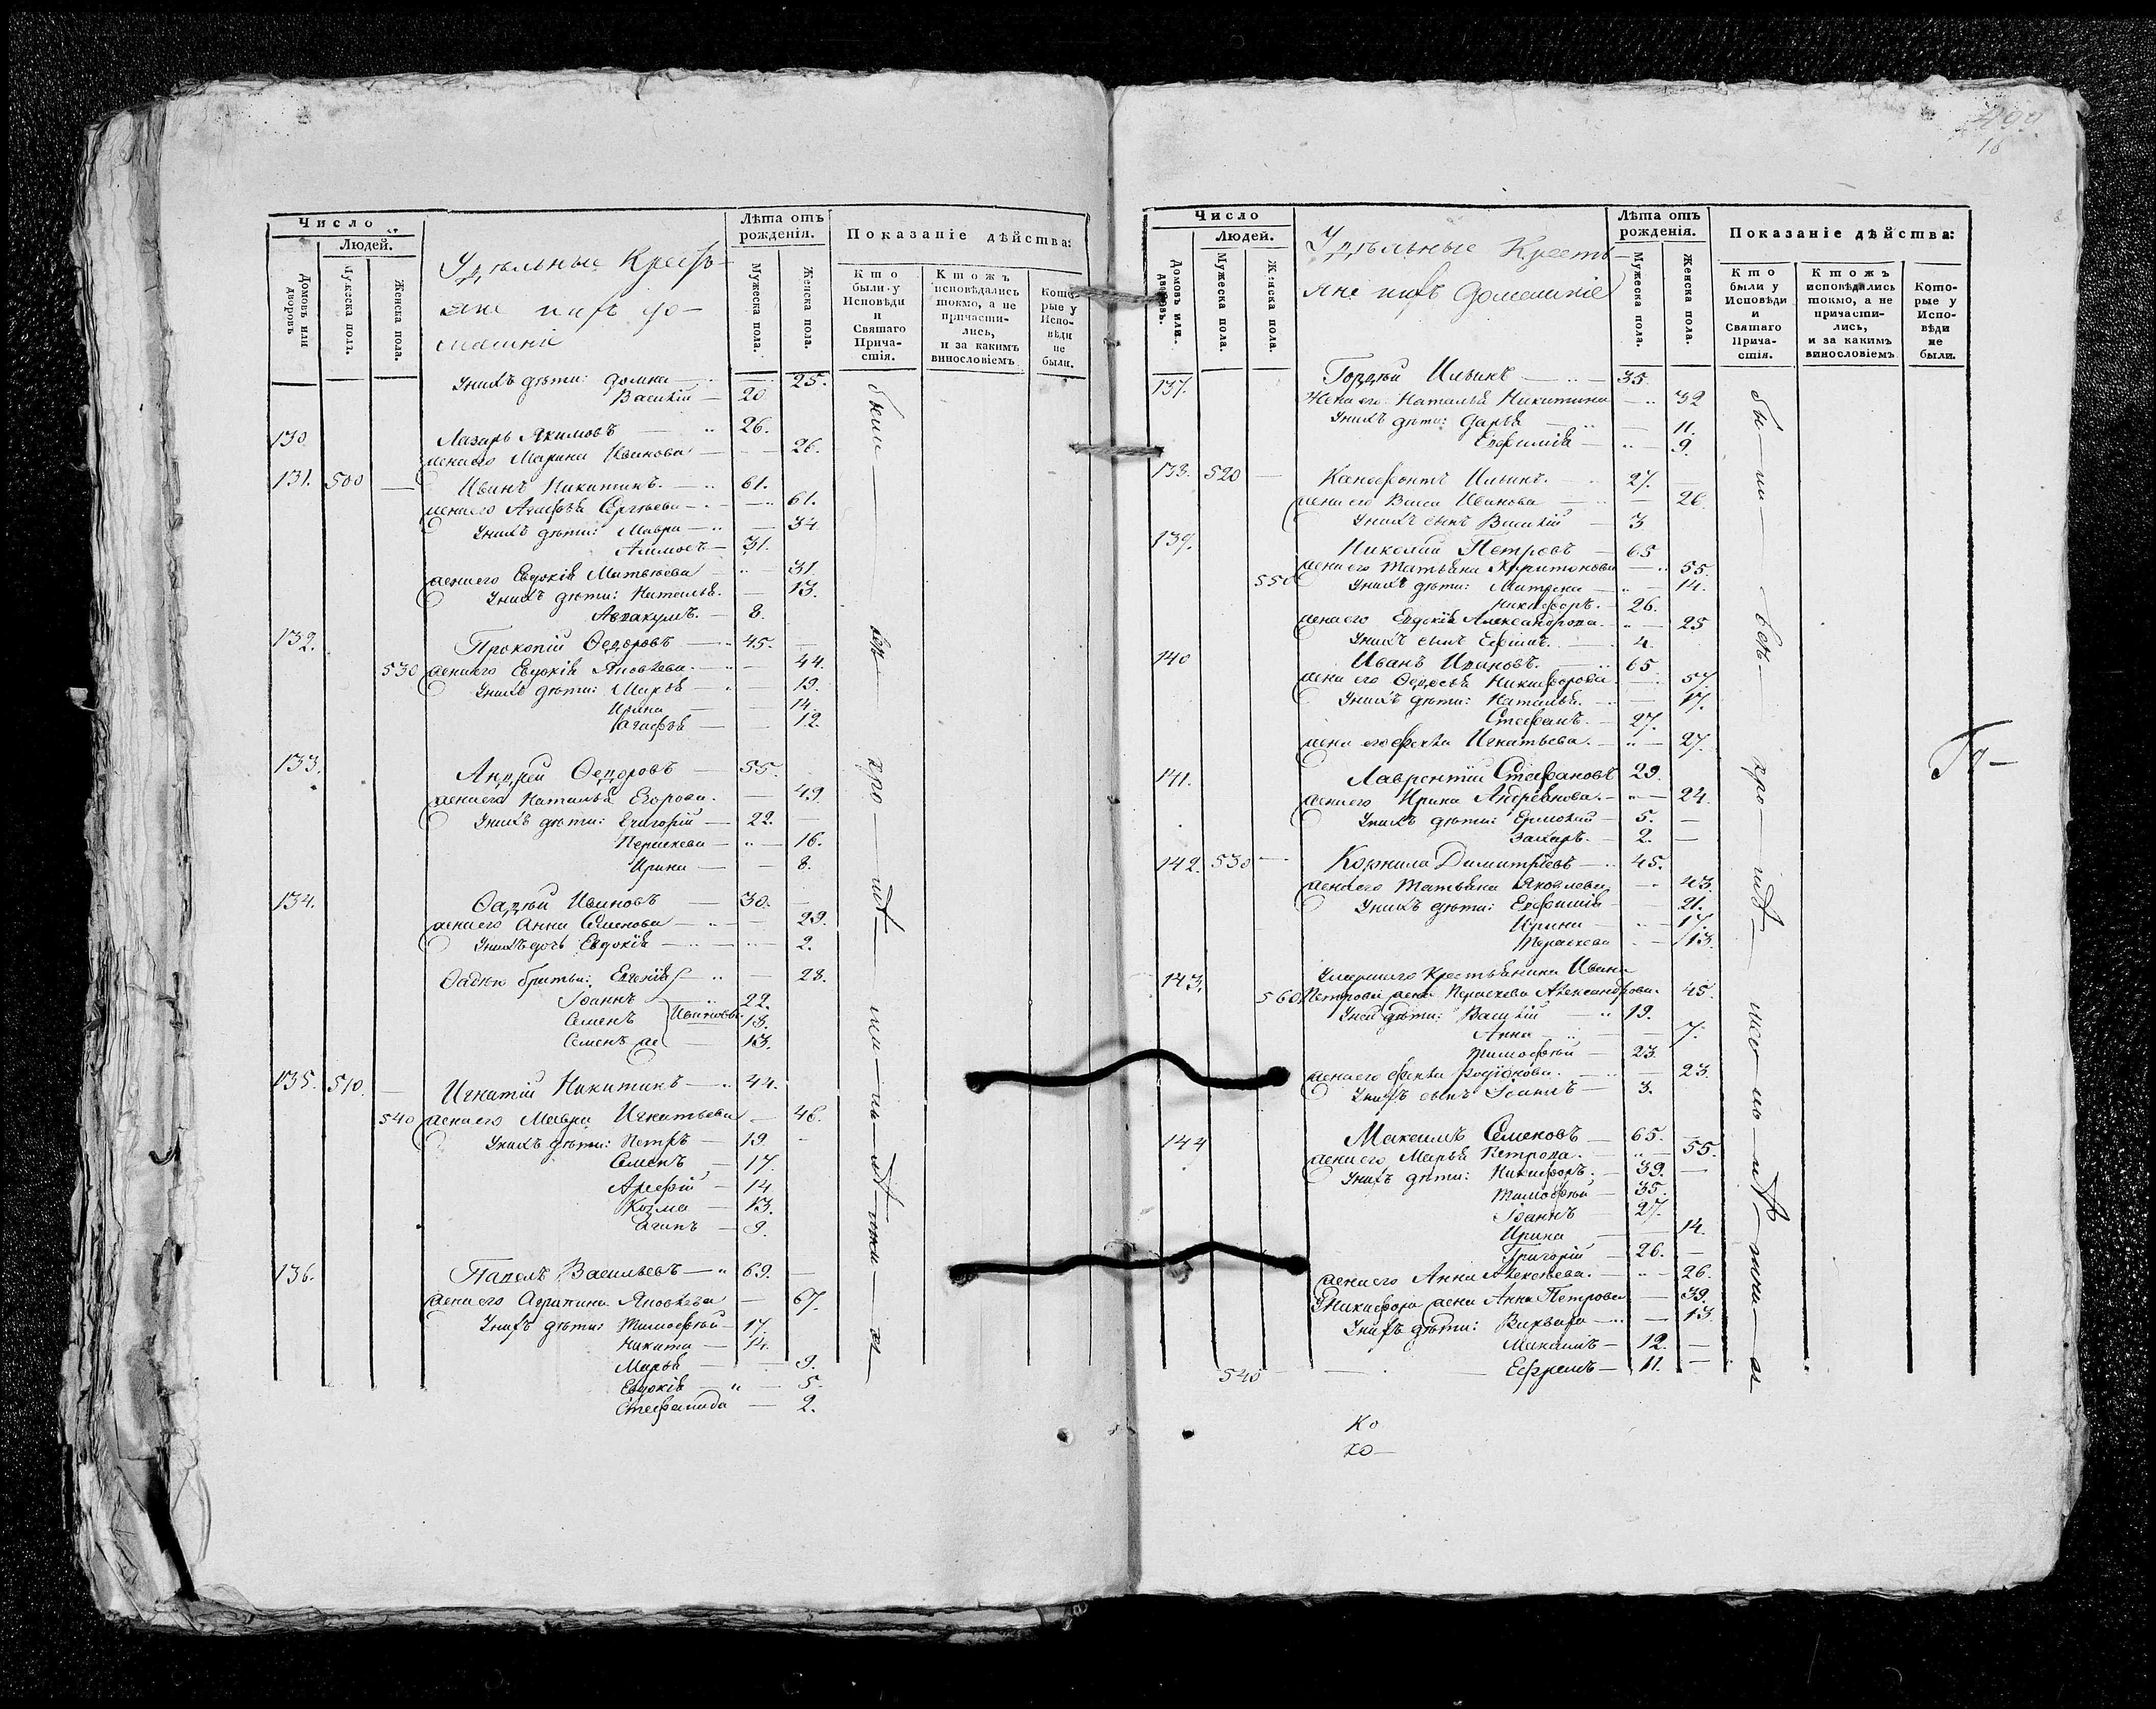 Число
Людей.
Домовъ или дворовъ
Мужеска пола.
Женска пола.
Удѣльные Кресть-
яне и ихъ до-
машніе
Лѣта отъ рожденія.
Мужеска пола.
Женска пола.
Показаніе дѣйства:
Кто были у Исповѣди и Святаго Прича-стія.
Ктожъ исповѣдались токмо, а не причасти-лись, и за какимъ винословіемъ
Кото-рые у Испо-вѣди не были.
У нихъ дѣти: Домна — 25.
Василій — 20.
130. Лазарь Якимовъ — 26.
жена его Марина Иванова — 26.
131. 500 — Иванъ Никитинъ. — 61.
жена его Агафья Сергѣева — 61.
У нихъ дѣти: Мавра — 34
31.
жена его Евдокія Матвѣева — 31.
У нихъ дѣти: Наталья. — 13.
Аввакумъ. — 8.
132. Прокопій Ѳедоровъ — 45.
530 жена его Евдокія Яковлева. — 44.
У нихъ дѣти: Марѳа — 19.
Ирина — 14.
Агафья — 12.
133. Андрей Ѳедоровъ — 55.
жена его Наталья Егорова. — 49.
У нихъ дѣти: Григорій — 22.
Параскева — 16.
Ирина — 8.
134. Ѳадѣй Ивановъ — 30.
жена его Анна Семенова — 29.
У нихъ дочь Евдокія — 2.
Ѳадѣю братья: Евгенія — 28.
Іоаннъ — 22.
Семенъ Ивановы 13.
Семенъ же — 13.
135. 510. — Игнатій Никитинъ — 44.
540 жена его Мавра Игнатьева — 46.
У нихъ дѣти: Петръ — 19.
Семенъ — 17.
Арефій — 14
Козма — 13.
9.
136. Павелъ Васильевъ — 69.
жена его Агрипина Яковлева — 67.
У нихъ дѣти: Тимоѳей — 17.
Никита — 14.
Марья — 9.
Евдокія — 5.
Стефанида — 2.
были всѣ
16
Число
Людей.
Домовъ или дворовъ.
Мужеска пола.
Женска пола.
Удѣльные Кресть-
яне и ихъ домашніе
Лѣта отъ рожденія.
Мужеска пола.
Женска пола.
Показаніе дѣйства:
Кто были у Исповѣди и Святаго Прича-стія.
Ктожъ исповѣдались токмо, а не причасти-лись, и за какимъ винословіемъ
Кото-рые у Испо-вѣди не были.
137. Гордѣй Ильинъ — 35.
Жена его Наталья Никитина — 32
У нихъ дѣти: Дарья — 11.
Евфимія — 9.
138. 520 — Ксенофонтъ Ильинъ. — 27.
жена его Васса Иванова — 26.
У нихъ сынъ Василій — 3
139. Николай Петровъ — 65
жена его Татьяна Харитонова — 55.
550 У нихъ дѣти: Матрена — 14.
Никифоръ. — 26.
жена его Евдокія Александрова. — 25
У нихъ сынъ Ефимъ. — 4.
140 Иванъ Ивановъ. — 65
жена его Ѳедосья Никифорова. — 57.
У нихъ дѣти: Наталья. — 17.
Стефанъ. — 27.
жена его Фекла Игнатьева. — 27.
141. Лаврентій Стефановъ 29.
жена его Ирина Андреянова. — 24.
У нихъ дѣти: Ермолай — 5.
Захаръ. — 2.
142. 530 — Корнила Димитріевъ — 45.
жена его Татьяна Яковлева — 43.
У нихъ дѣти: Евфимія — 21.
Ирина — 17.
Параскева — 13.
143. Умершаго Крестьянина Ивана
560 Петрова жена Параскева Александрова. 45.
У ней дѣти: Василій — 19.
Анна — 7.
Тимоѳей — 23.
жена его Фекла Родіонова. — 23.
У нихъ сынъ Іоаннъ — 3.
144 Максимъ Семеновъ — 65.
жена его Марья Петрова. — 55.
У нихъ дѣти: Никифоръ. — 39.
Тимоѳей — 35.
Іоаннъ — 27.
Ирина — 14.
Григорій — 26.
жена его Анна Алексѣева. — 26.
У Никифора жена Анна Петрова — 39.
У нихъ дѣти: Варвара — 13.
Михаилъ — 12.
540 — Ефремъ — 11.
бы-ли — всѣ
Ко
ко-